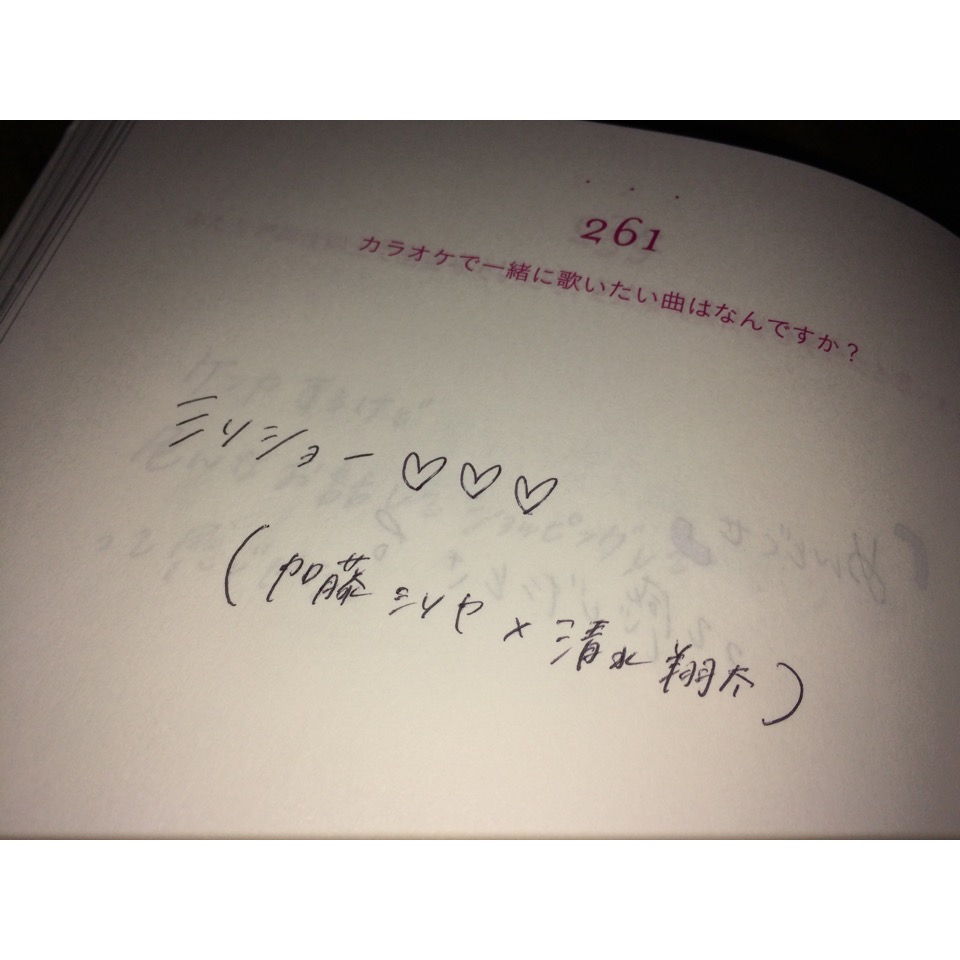 261
カラオケで一緒に歌いたい曲はなんですか?
ミリショー♡♡♡
(加藤ミリヤ×清水翔太)